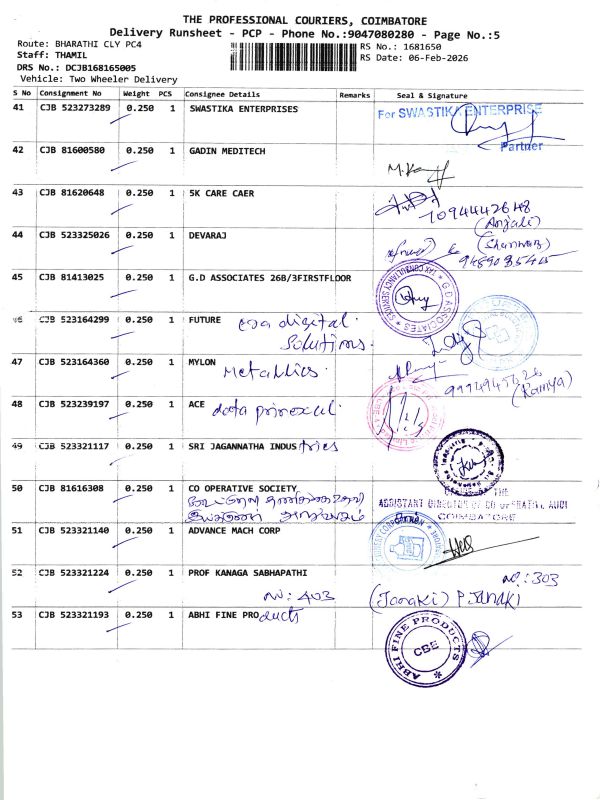 THE PROFESSIONAL COURIERS, COIMBATORE
Delivery Runsheet - PCP - Phone No.:9047080280 - Page No.:5
Route: BHARATHI CLY PC4
RS No.: 1681650
Staff: THAMIL
RS Date: 06-Feb-2026
DRS No.: DCJB168165005
Vehicle: Two Wheeler Delivery
S No Consignment No Weight PCS Consignee Details Remarks Seal & Signature
41 CJB 523273289 0.250 1 SWASTIKA ENTERPRISES
For SWASTIKA ENTERPRISE
Partner
42 CJB 81600580 0.250 1 GADIN MEDITECH
43 CJB 81620648 0.250 1 5K CARE CAER
(Anjali)
44 CJB 523325026 0.250 1 DEVARAJ
45 CJB 81413025 0.250 1 G.D ASSOCIATES 26B/3FIRSTFLOOR
G.D ASSOCIATES * TAX CONSULTANCY SERVICES *
46 CJB 523164299 0.250 1 FUTURE era digital
Solutions.
47 CJB 523164360 0.250 1 MYLON
Metallics.
(Ramya)
48 CJB 523239197 0.250 1 ACE data pinexcel.
49 CJB 523321117 0.250 1 SRI JAGANNATHA INDUStries
50 CJB 81616308 0.250 1 CO OPERATIVE SOCIETY
THE
ASSISTANT DIRECTOR OF CO OPERATIVE AUDI
COIMBATORE
51 CJB 523321140 0.250 1 ADVANCE MACH CORP
52 CJB 523321224 0.250 1 PROF KANAGA SABHAPATHI
No: 403
No: 303
(Janaki) P. JANAKI
53 CJB 523321193 0.250 1 ABHI FINE PROducts
ABHI FINE PRODUCTS * CBE